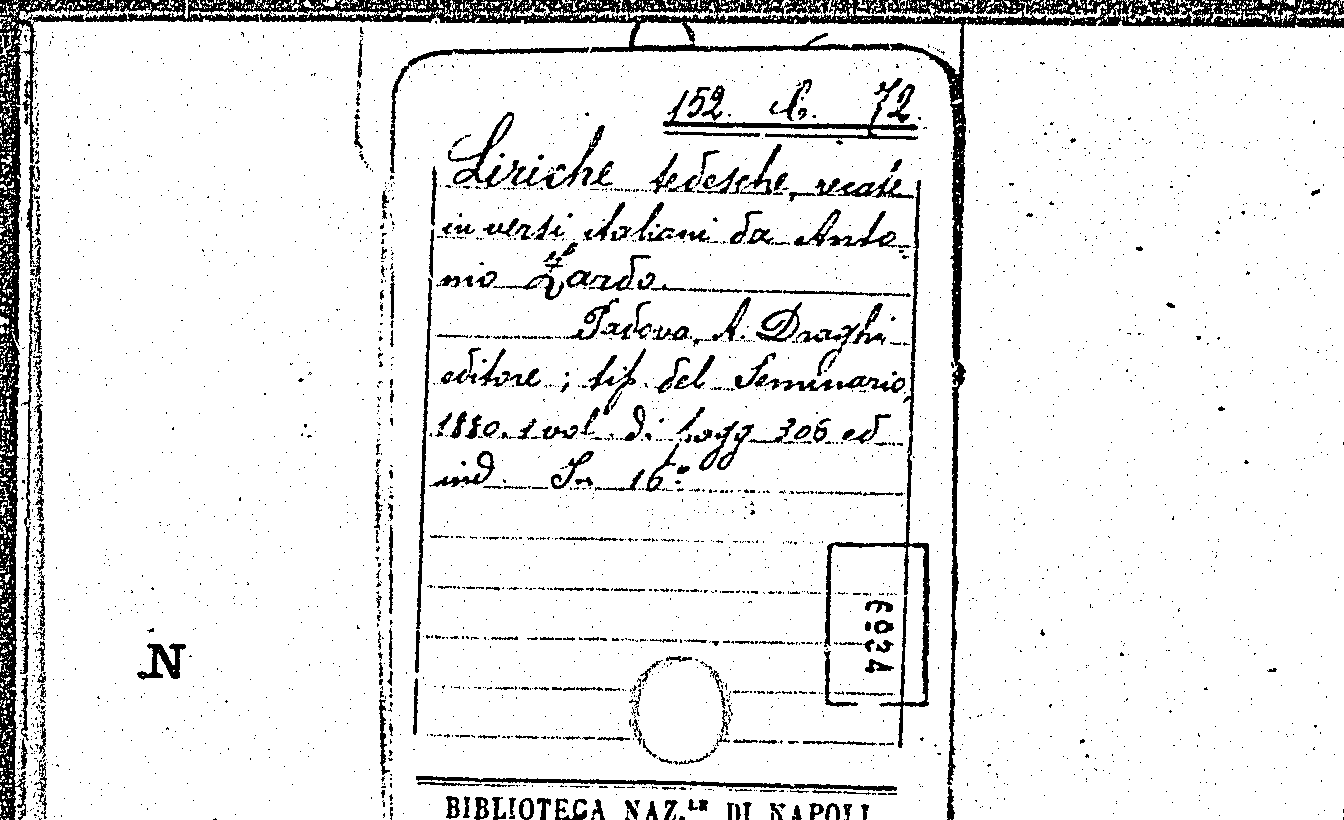 152. 72.
Liriche tedesche, recate
in versi italiani da Anto-
nio Zardo.
Padova, A. Draghi
editore; tip. del Seminario,
1880. 1 vol. di pagg 306 ed
ind. In 16.°
N
BIBLIOTECA NAZ.LE DI NAPOLI